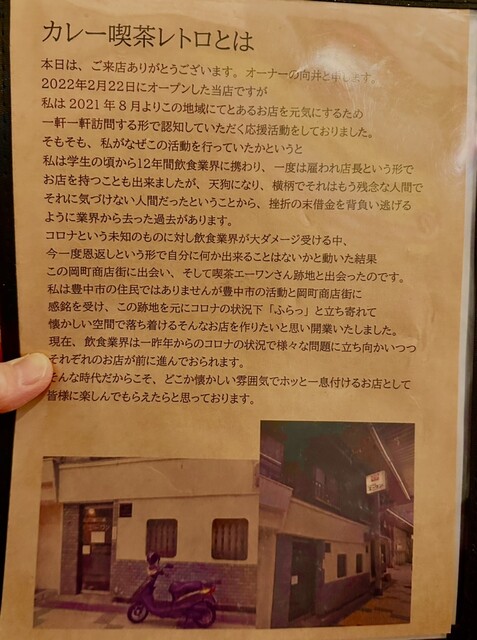 カレー喫茶レトロとは
本日は、ご来店ありがとうございます。オーナーの向井と申します。
2022年2月22日にオープンした当店ですが
私は2021年8月よりこの地域にてとあるお店を元気にするため
一軒一軒訪問する形で認知していただく応援活動をしておりました。
そもそも、私がなぜこの活動を行っていたかというと
私は学生の頃から12年間飲食業界に携わり、一度は雇われ店長という形で
お店を持つことも出来ましたが、天狗になり、横柄でそれはもう残念な人間で
それに気づけない人間だったということから、挫折の末借金を背負い逃げる
ように業界から去った過去があります。
コロナという未知のものに対し飲食業界が大ダメージ受ける中、
今一度恩返しという形で自分に何か出来ることはないかと動いた結果
この岡町商店街に出会い、そして喫茶エーワンさん跡地と出会ったのです。
私は豊中市の住民ではありませんが豊中市の活動と岡町商店街に
感銘を受け、この跡地を元にコロナの状況下「ふらっ」と立ち寄れて
懐かしい空間で落ち着けるそんなお店を作りたいと思い開業いたしました。
現在、飲食業界は一昨年からのコロナの状況で様々な問題に立ち向かいつつ
それぞれのお店が前に進んでおられます。
そんな時代だからこそ、どこか懐かしい雰囲気でホッと一息付けるお店として
皆様に楽しんでもらえたらと思っております。